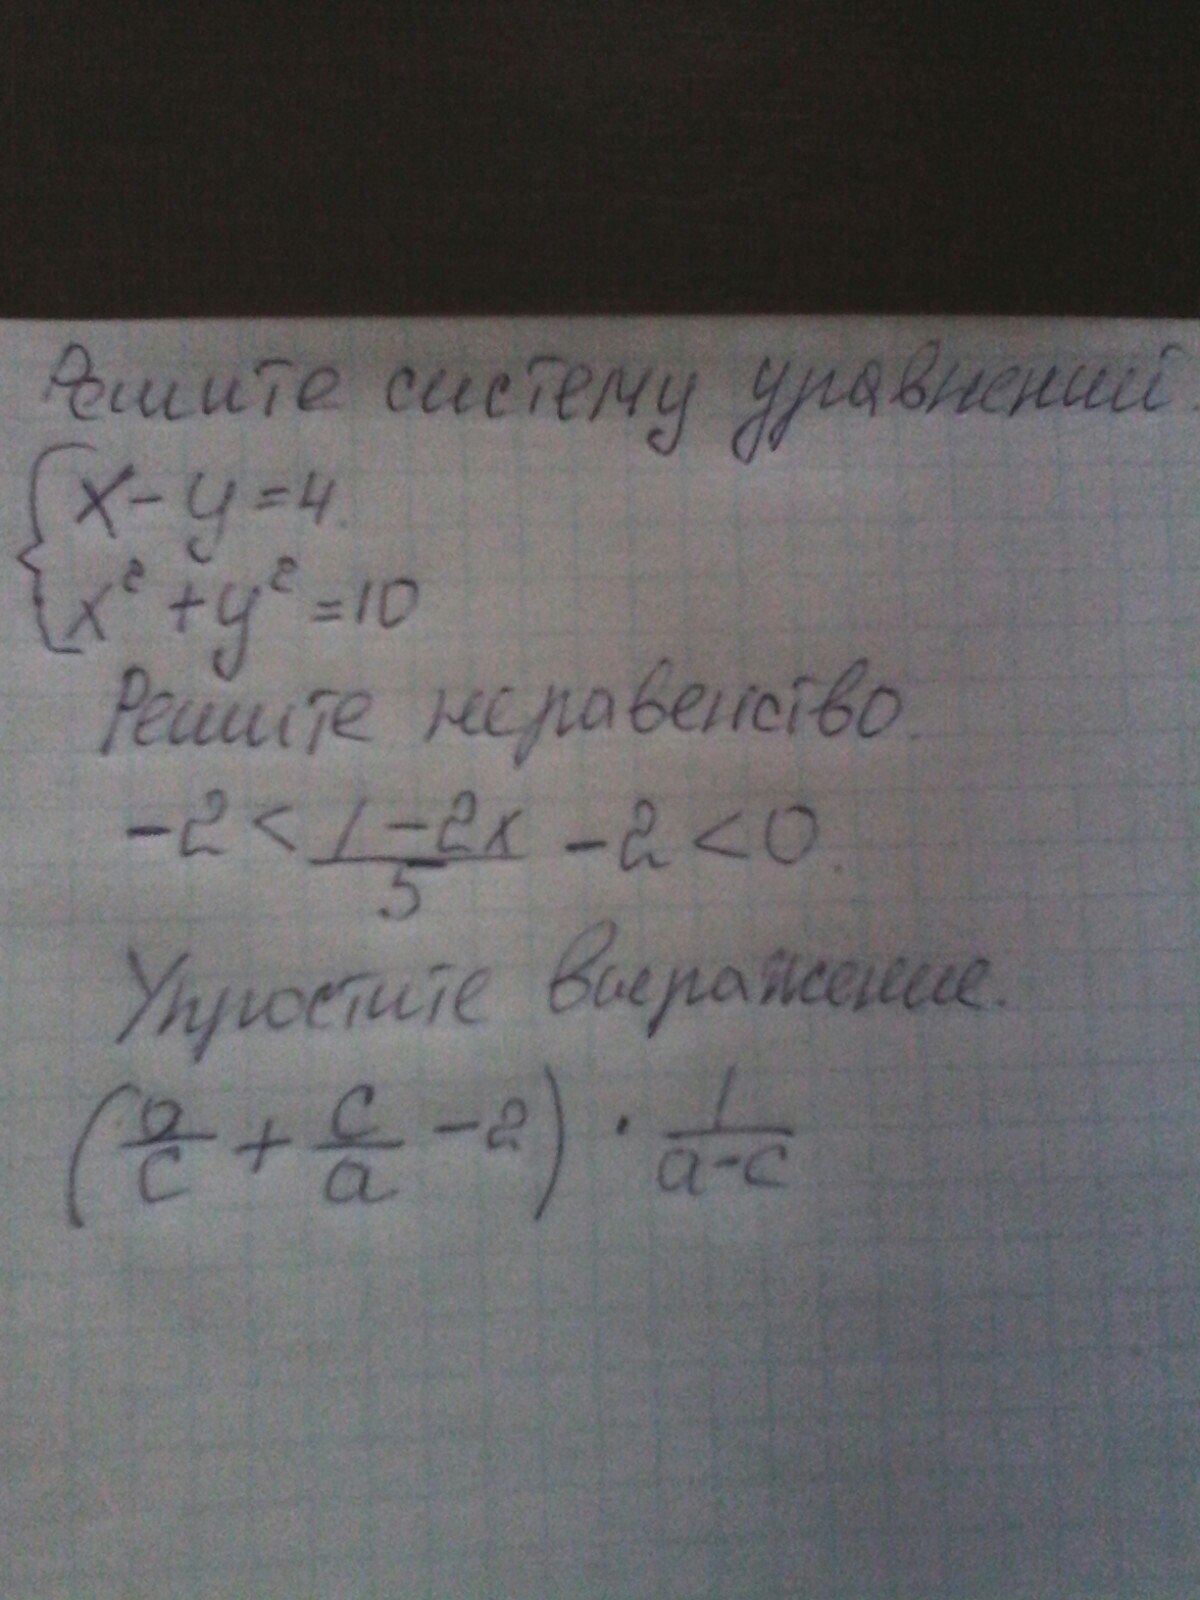 Решите систему уравнений.
{ x - y = 4.
x² + y² = 10
Решите неравенство.
-2 < (1 - 2x)/5 - 2 < 0.
Упростите выражение.
(a/c + c/a - 2) · 1/(a-c)